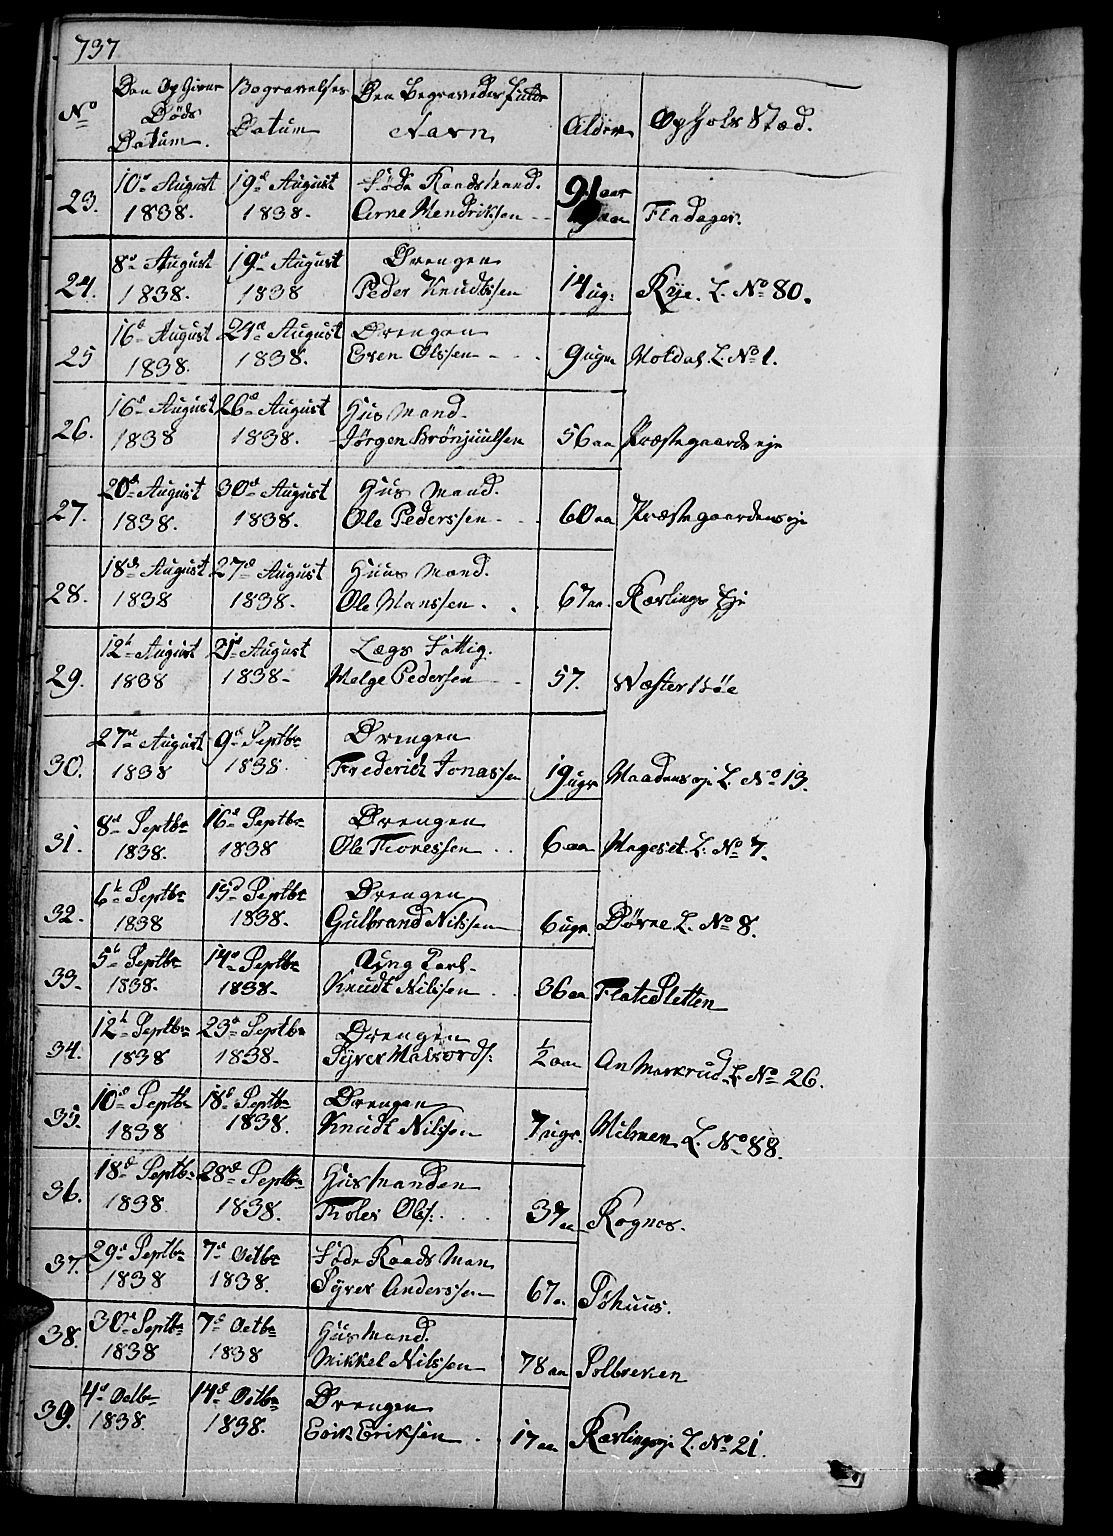 737
No
Den Op Givne
Døds
Datum.
Begravelses
Datum
Den Begravedes fulde
Navn
Alder
Opholds Stæd.
23.
10de August
1838.
19de August
1838.
Føde Raadsmand.
Arne Hendriksen
91 aar
Fladager.
24.
8de August
1838.
19de August
1838
Drengen
Peder Knudtsen
14 ug:
Rye. L. No 80.
25
16de August
1838.
24de August
1838.
Drengen
Even Olssen
9 uger
Motdal L. No 1.
26.
16de August
1838
26de August
1838.
Husmand.
Jørgen
56 aa
Præstegaards eje
27.
20de August
1838.
30de August
1838.
Hus Mand.
Ole Pederssen
60 aa
Præstegaardens eje
28.
18de August
1838
27de August
1838.
Huus Mand.
Ole Hanssen
67 aa.
Kærlings Eje
29.
12te August
1838
21de August
1838
Lægs Fattig.
Helge Pedersen
57.
Wæster Bøe
30.
27de August
1838
9de Septbr
1838.
Drengen
Frederich Jonassen
19 uger
Haadens eje L. No 13.
31.
8de Septbr
1838.
16de Septbr
1838
Drengen
Ole Thoressen
6 aar
Hageset L. No 7.
32.
6te Septbr
1838
15de Septbr
1838.
Drengen
Gulbrand Nilssen
6 uger.
Børne L. No 8.
33.
5te Septbr
1838.
14de Septbr
1838.
Ung Karl
Knudt Nilssen
36 aa
Flatsletten
34.
12te Septbr
1838
23de Septbr
1838.
Drengen
Syver Halvords:
1/2 aar
An Markrud L. No 26.
35.
10de Septbr
1838
18de Septbr
1838.
Drengen
Knudt Nilssen
7 uger.
Hilmen L. No 88.
36.
18de Septbr
1838
28de Septbr
1838.
Husmanden
Tholes Ols:
37 aa
Rognos.
37.
29de Septbr
1838
7de Octbr
1838.
Føde Raads Man
Syver Anderssen
67 a
Søhuus.
38.
30de Septbr
1838
7de Octbr
1838
Husmand.
Mikkel Nilssen
78 aa
Solbrekken
39.
4de Octbr
1838.
14de Octbr
1838.
Drengen
Erik Eriksen
17 aa
Kærlingeje L. No 21.